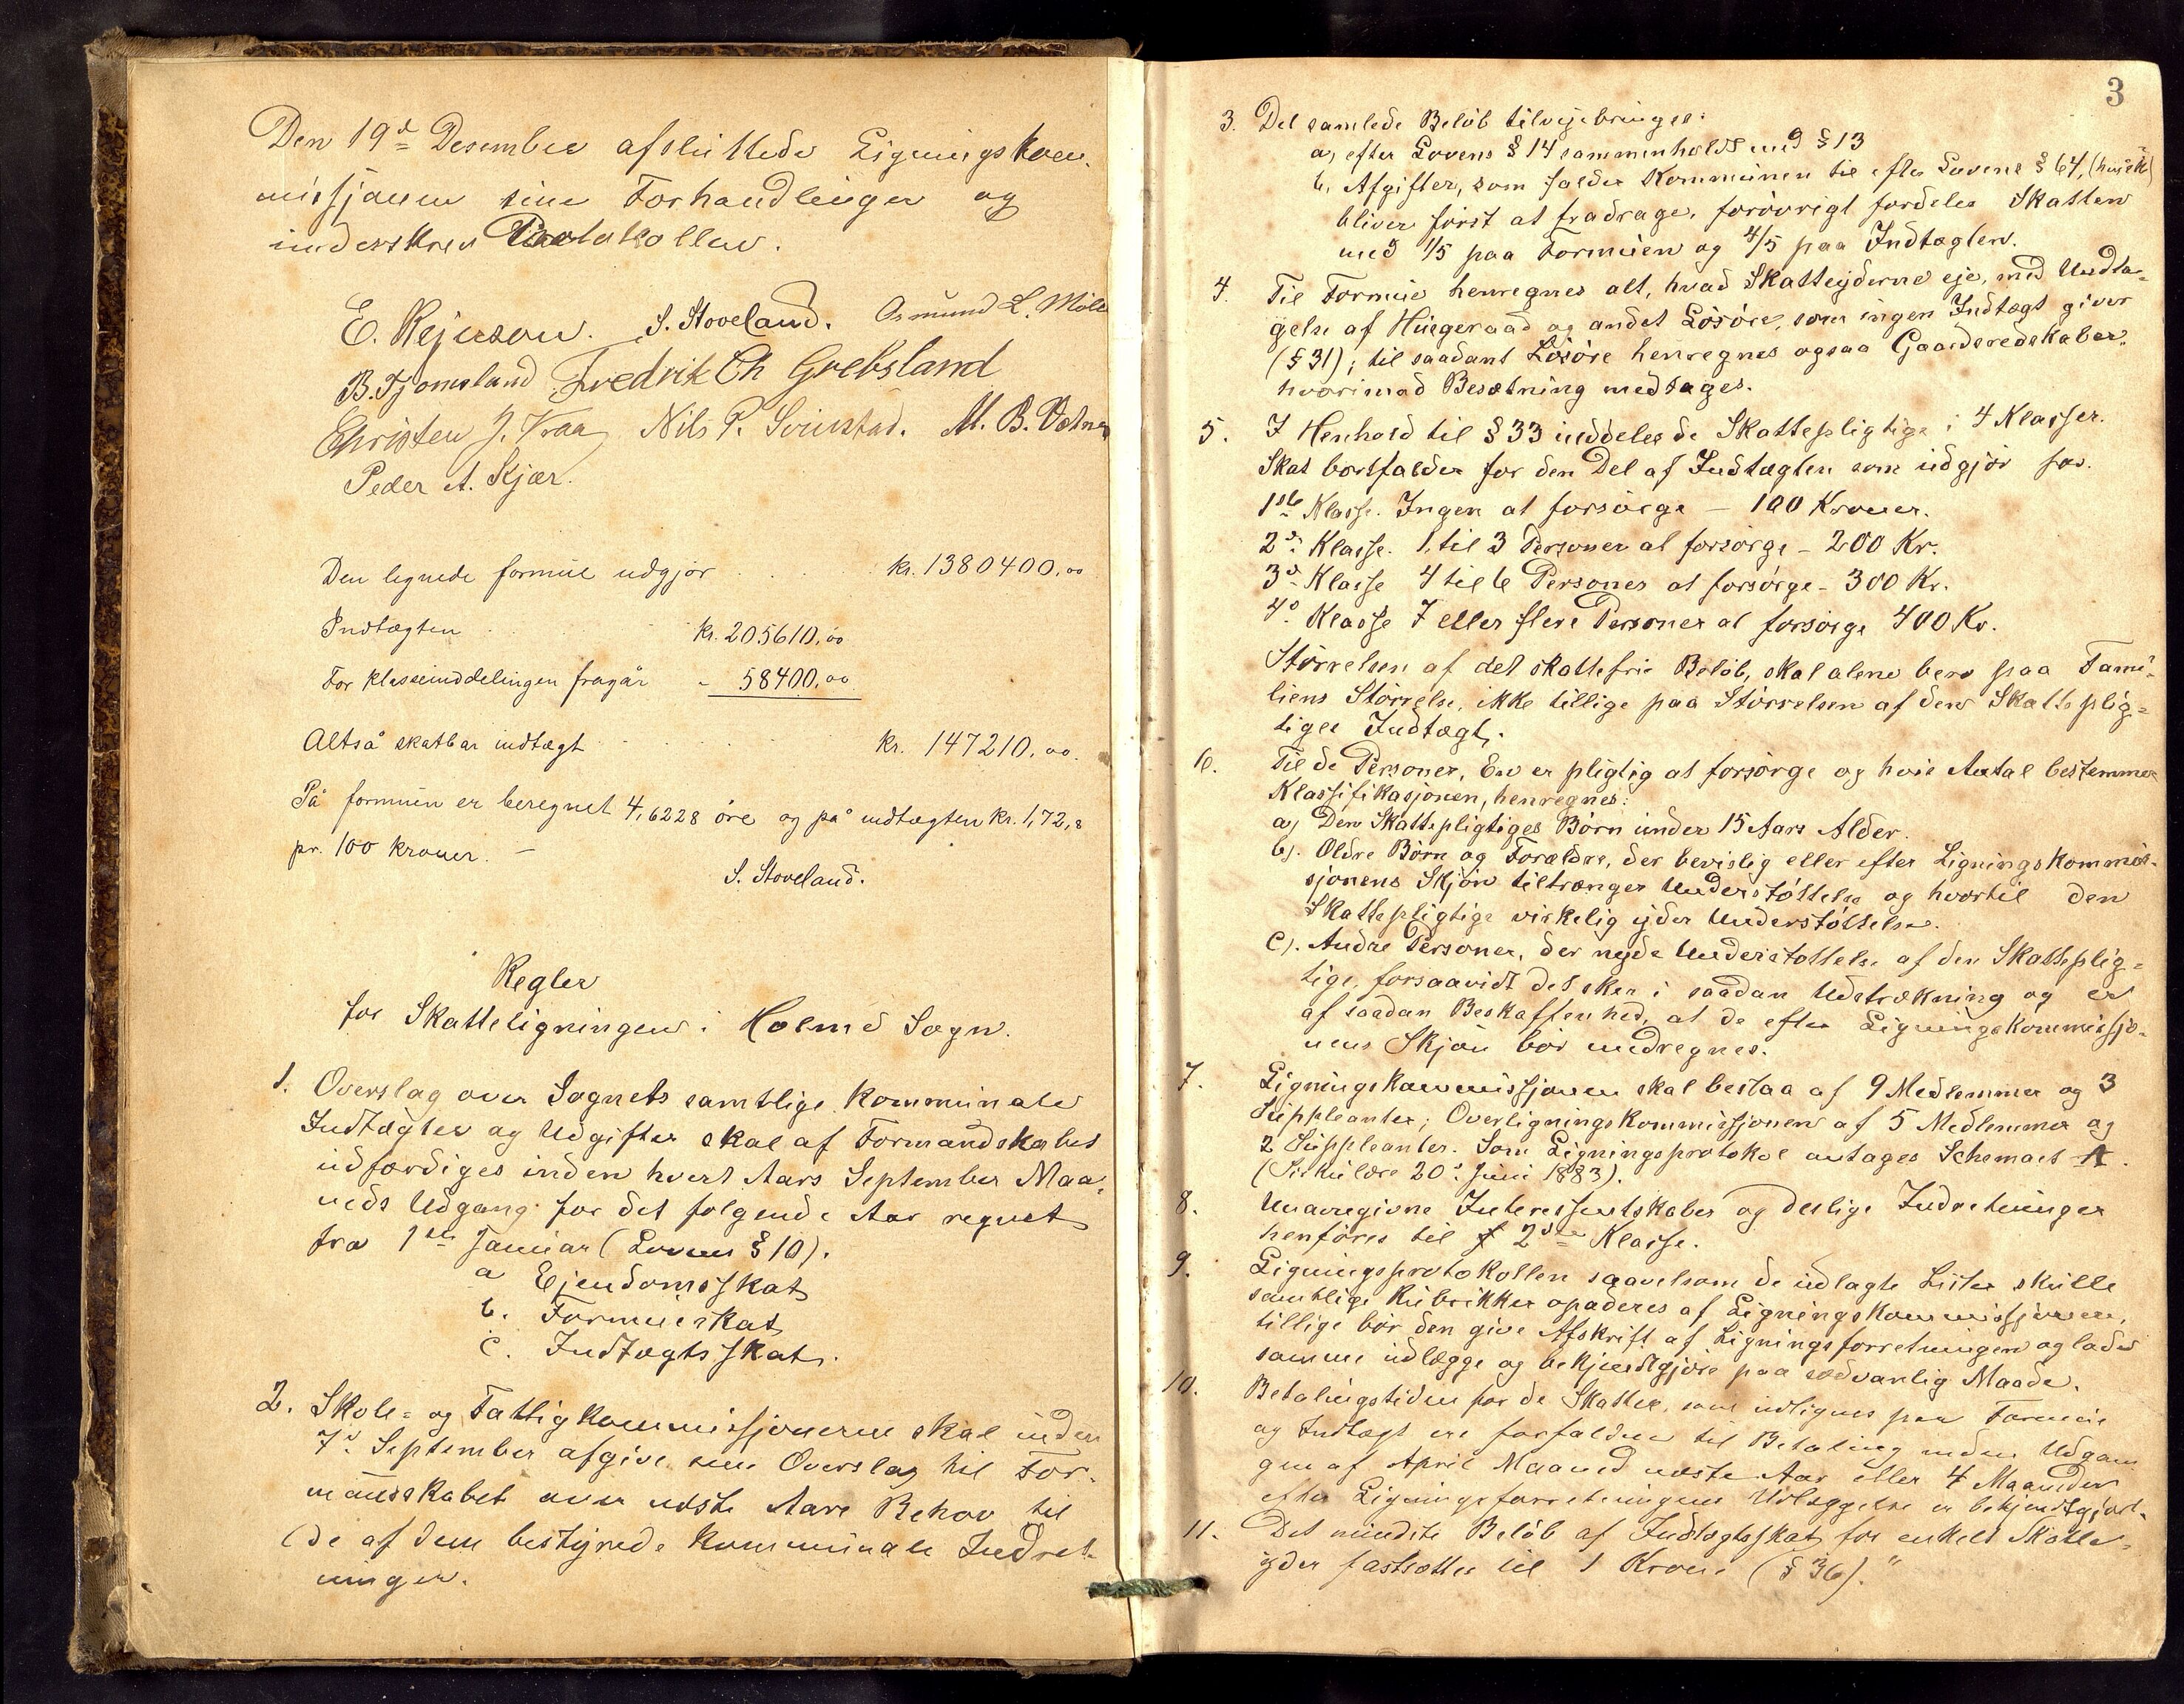 Den 19d Desember afsluttede Ligningskom-
missjonen sine Forhandlinger og
underskrev Protokollen.
E. Rejerson. S. Stoveland. Osmund L. Möll
B. Tjomsland Fredrik Ch Grebsland
Christen J. Kraa Nils P. Svinstad. M. B. Vatne
Peder A. Kjær.
Den lignede formue udgjør kr. 1380400,00
Indtægten kr. 205610,00
For klasseinddelingen fragår - 58400,00
Altså skatbar indtægt kr. 147210,00.
På formuen er beregnet 4,6228 öre og på indtægten kr. 1,72,8
pr. 100 kroner. -
S. Stoveland.
Regler
for Skatteligningen i Holme Sogn.
1. Overslag over Sognets samtlige kommunale
Indtægter og Udgifter skal af Formandskabet
udfærdiges inden hvert Aars September Maa-
neds Udgang for det følgende Aar regnet
fra 1ste Januar (Lovens § 10).
a Ejendomsskat
b. Formueskat
c. Indtægtsskat.
2. Skole- og Fattigkommissjonerne skal inden
7d September afgive sine Overslag til For-
mandskabet over næste Aars Behov til
de af dem bestyrede kommunale Indret-
ninger.
3
3. Det samlede Beløb tilvejebringes:
a, efter Lovens § 14 sammenholdt med § 13
b, Afgifter, som falder Kommunen til efter Lovens § 64,
bliver først at fradrage, forøvrigt fordeles Skatten
med 1/5 paa Formuen og 4/5 paa Indtægten.
4. Til Formue henregnes alt, hvad Skatteyderne eje, med Undta-
gelse af Husgeraad og andet Løsøre, som ingen Indtægt giver
(§ 31); til saadant Løsøre henregnes ogsaa Gaardsredskaber,
hvorimod Besætning medtages.
5. I Henhold til § 33 inddeles de Skattepligtige i 4 Klasser.
Skat bortfalder for den Del af Indtægten som udgjør for.
1ste Klasse. Ingen at forsørge - 100 Kroner.
2d Klasse. 1 til 3 Personer at forsørge - 200 Kr.
3d Klasse 4 til 6 Personer at forsørge - 300 Kr.
4d Klasse 7 eller flere Personer at forsørge 400 Kr.
Størrelsen af det skattefrie Beløb, skal alene bero paa Fami-
liens Størrelse, ikke tillige paa Størrelsen af den Skatteplig-
tiges Indtægt.
6. Til de Personer, En er pligtig at forsørge og hvis Antal bestemmer
Klassifikasjonen, henregnes:
a) Den Skattepligtiges Børn under 15 Aars Alder.
b). Oldre Børn og Forældre, der bevislig eller efter Ligningskommis-
sjonens Skjøn tiltrænger Understøttelse og hvortil den
Skattepligtige virkelig yder Understøttelse.
c). Andre Personer, der nyde Understøttelse af den Skatteplig-
tige, forsaavidt det sker i saadan Udstrækning og er
af saadan Beskaffenhed, at de efter Ligningskommissjo-
nens Skjøn bør medregnes.
7. Ligningskommissjonen skal bestaa af 9 Medlemmer og 3
Suppleanter; Overligningskommissjonen af 5 Medlemmer og
2 Suppleanter. Som Ligningsprotokol antages Schemaet A.
(Sirkulære 20d Juni 1883).
8. Unavngivne Interessentskaber og deslige Indretninger
henføres til 2den Klasse.
9. Ligningsprotokollen saavelsom de udlagte Lister skulle
samtlige Rubrikker opaderes af Ligningskommissjonen,
tillige bør den give Afskrift af Ligningsforretningen og lade
samme udlægge og bekjendtgjøre paa sædvanlig Maade.
10. Betalingstiden for de Skatter, som udlignes paa Formue
og Indtægt ere forfaldne til Betaling inden Udgan
gen af April Maaned næste Aar eller 4 Maaneder
efter Ligningsforretningens Udlæggelse er bekjendtgjort.
11. Det mindste Beløb af Indtægtsskat for enkelt Skatte-
yder fastsættes til 1 Krone (§ 36)."